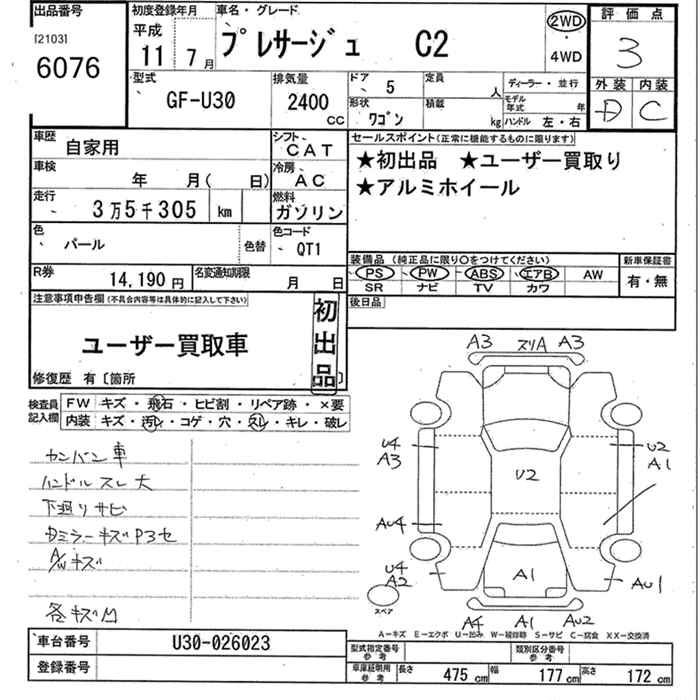 出品番号 初度登録年月 車名・グレード 評価点
[2103] 6076 平成 11 7月 プレサージュ C2 2WD ・ 4WD 3
型式 GF-U30 排気量 2400 CC ドア 5 定員 人 ディーラー・並行 外装 内装
形状 ワゴン 積載 kg モデル年式 年 ハンドル 左・右 D C
車歴 自家用 シフト CAT セールスポイント(正常に機能するものに限ります)
車検 年 月( 日) 冷房 AC ★初出品 ★ユーザー買取り
走行 3万5千305 km 燃料 ガソリン ★アルミホイール
色 パール 色替 色コード QT1
装備品 (純正品に限り○をつけてください) 新車保証書
R券 14,190円 名変通知期限 月 日 PS PW ABS エアB AW 有・無
SR ナビ TV カワ
注意事項申告欄(不具合内容等は具体的に記入して下さい) 初出品 後日品
ユーザー買取車
修復歴 有〔箇所 〕
検査員記入欄 FW キズ・飛石・ヒビ割・リペア跡・×要
内装 キズ・汚レ・コゲ・穴・スレ・キレ・破レ
カンバン車
ハンドルスレ大
下廻りサビ
Dミラーキズ P3セ
A/Wキズ
各キズ凹
A3 スリA A3
U4 A3 U2 U2 A1
AU4
U4 A2 A1 AU1
スペア
A4 A1 AU2
A−キズ E−エクボ U−凹ミ W−補修跡 S−サビ C−腐食 XX−交換済
車台番号 U30-026023 型式指定番号 参考 類別区分番号 参考
登録番号 車庫証明用 参考 長さ 475 cm 幅 177 cm 高さ 172 cm